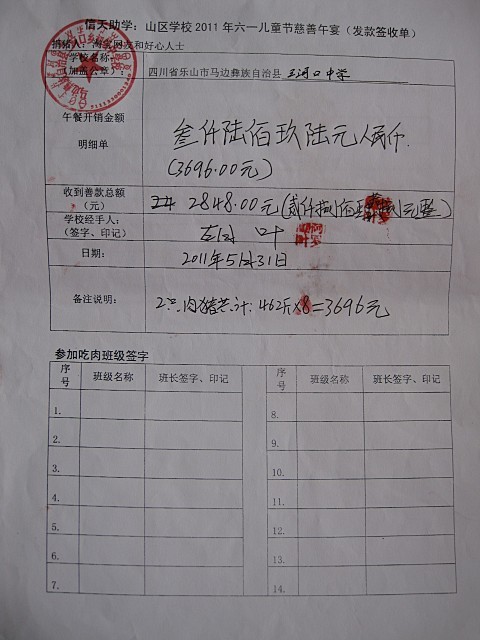 信天助学：山区学校 2011 年六一儿童节慈善午宴（发款签收单）
捐猪人：淘宝网友和好心人士
学校名称：
（加盖公章）：
四川省乐山市马边彝族自治县 三河口中学
午餐开销金额
明细单
叁仟陆佰玖陆元人民币.
(3696.00元)
收到善款总额
（元）
2848.00元(贰仟捌佰 元整)
学校经手人：
（签字、印记）
日期：
2011年5月31日
备注说明：
2只肉猪共计:462斤×8=3696元
参加吃肉班级签字
序号 班级名称 班长签字、印记 序号 班级名称 班长签字、印记
1. 8.
2. 9.
3. 10.
4. 11.
5. 12.
6. 13.
7. 14.